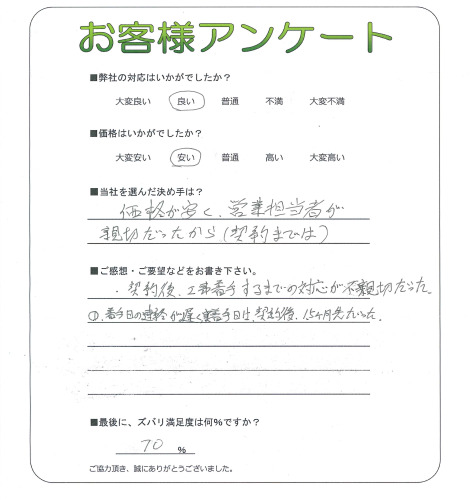 お客様アンケート
■弊社の対応はいかがでしたか？
大変良い 良い 普通 不満 大変不満
■価格はいかがでしたか？
大変安い 安い 普通 高い 大変高い
■当社を選んだ決め手は？
価格が安く、営業担当者が
親切だったから（契約までは）
■ご感想・ご要望などをお書き下さい。
・契約後、工事着手するまでの対応が不親切だった。
①、着手日の連絡が遅く、着手日は、契約後、1.5ヶ月先だった。
■最後に、ズバリ満足度は何%ですか？
70 %
ご協力頂き、誠にありがとうございました。